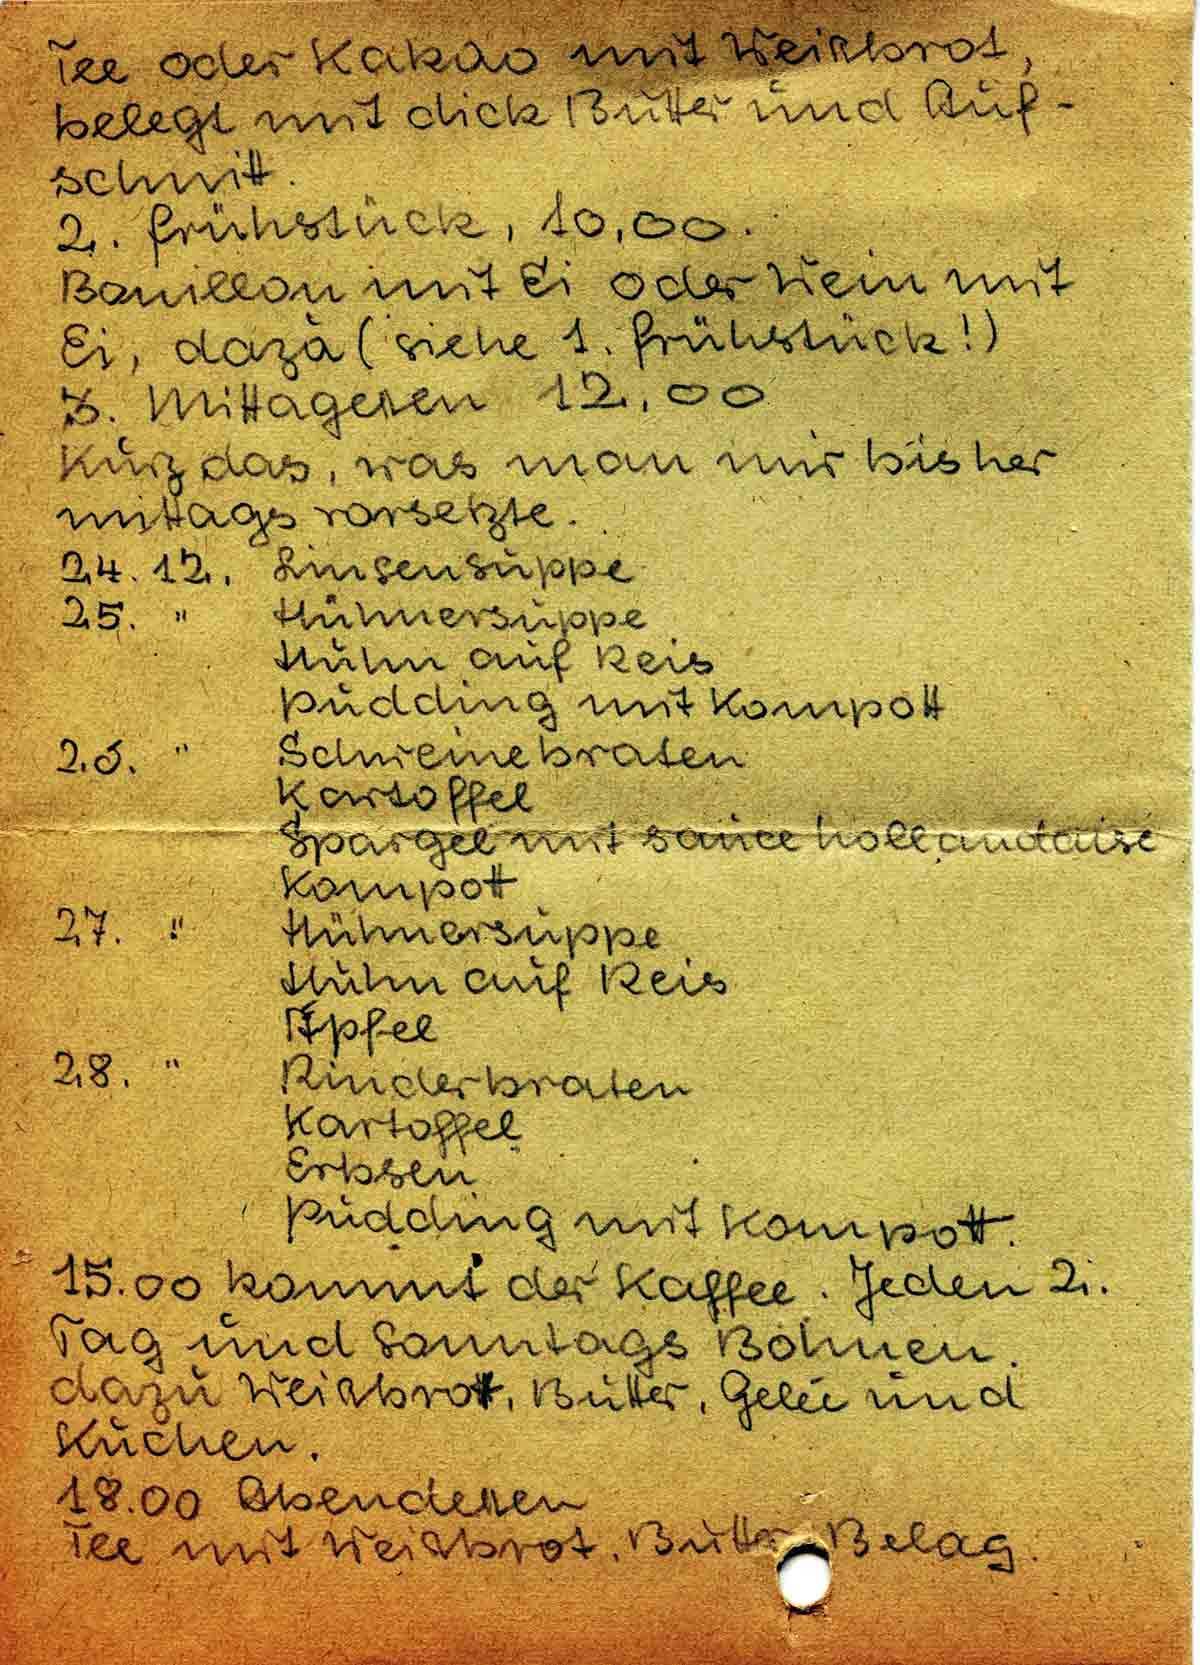 Tee oder Kakao mit Weißbrot,
belegt mit dick Butter und Auf-
schnitt.
2. Frühstück, 10,00.
Bouillon mit Ei oder Wein mit
Ei, dazu (siehe 1. Frühstück!)
3. Mittagessen 12,00
Kurz das, was man mir bisher
mittags vorsetzte.
24.12. Linsensuppe
25. " Hühnersuppe
Huhn auf Reis
Pudding mit Kompott
26. " Schweinebraten
Kartoffel
Spargel mit sauce hollandaise
Kompott
27. " Hühnersuppe
Huhn auf Reis
Äpfel
28. " Rinderbraten
Kartoffel
Erbsen
Pudding mit Kompott.
15.00 kommt der Kaffee. Jeden 2.
Tag und Sonntags Bohnen.
dazu Weißbrot, Butter, Gelée und
Kuchen.
18.00 Abendessen
Tee mit Weißbrot, Butter Belag.